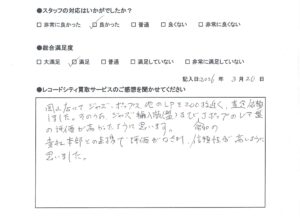 ●スタッフの対応はいかがでしたか?
□非常に良かった ☑良かった □普通 □良くない □非常に良くない
●総合満足度
□大満足 ☑満足 □普通 □満足していない □非常に満足していない
記入日2016年 3月20日
●レコードシティ買取サービスのご感想を聞かせてください
岡山店にて ジャズ、ポップス、他のLPを200枚近く、査定依頼
しました。そのうち、ジャズ輸入盤(盤)及びポップのレア盤
の評価が高かったように思います。
会社本部との連携で評価がなされ、信頼性が高いように
思いました。